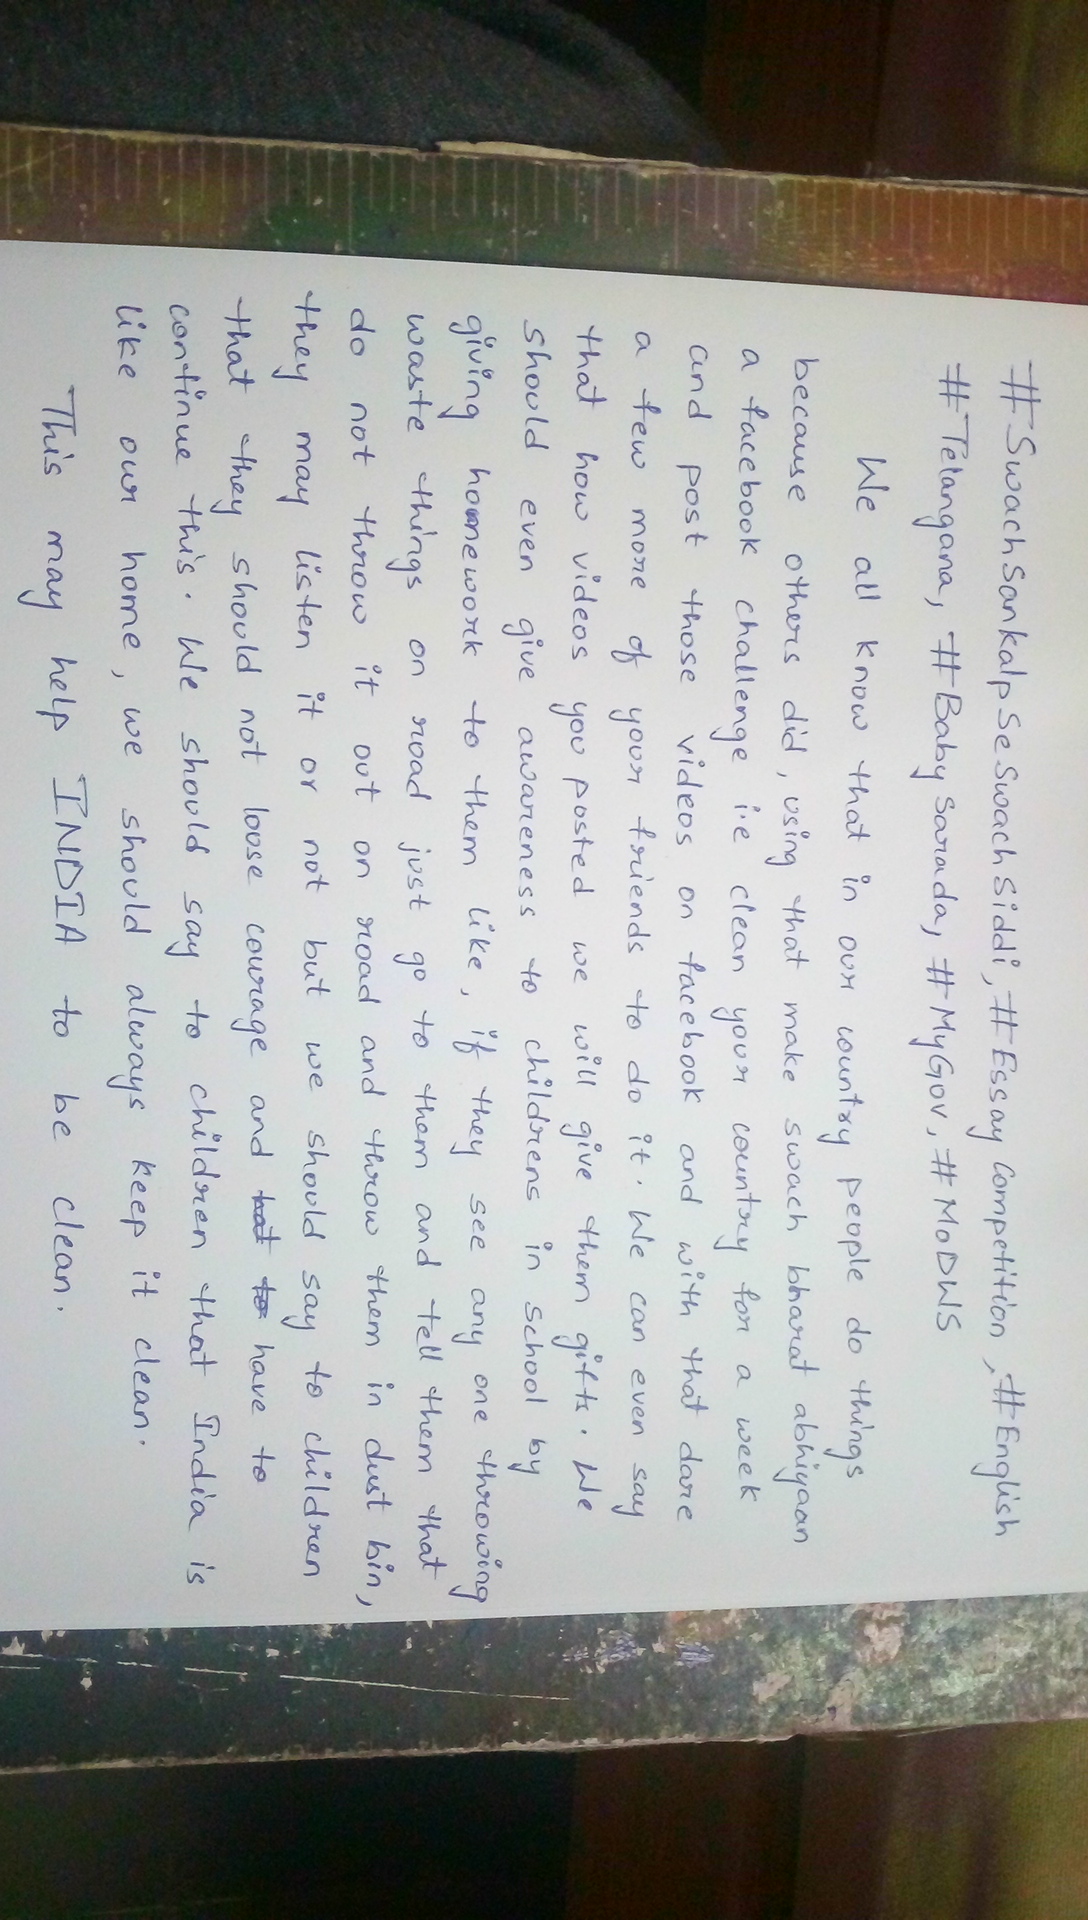 #SwachSankalpSeSwachSiddi, #Essay Competition, #English
#Telangana, #Baby Sarada, #MyGov, #MoDWS
We all know that in our country people do things
because others did, using that make swach bharat abhiyaan
a facebook challenge i.e clean your country for a week
and post those videos on facebook and with that dare
a few more of your friends to do it. We can even say
that how videos you posted we will give them gifts. We
should even give awareness to childrens in school by
giving homework to them like, if they see any one throwing
waste things on road just go to them and tell them that
do not throw it out on road and throw them in dust bin,
they may listen it or not but we should say to children
that they should not loose courage and have to
continue this. We should say to children that India is
like our home, we should always keep it clean.
This may help INDIA to be clean.